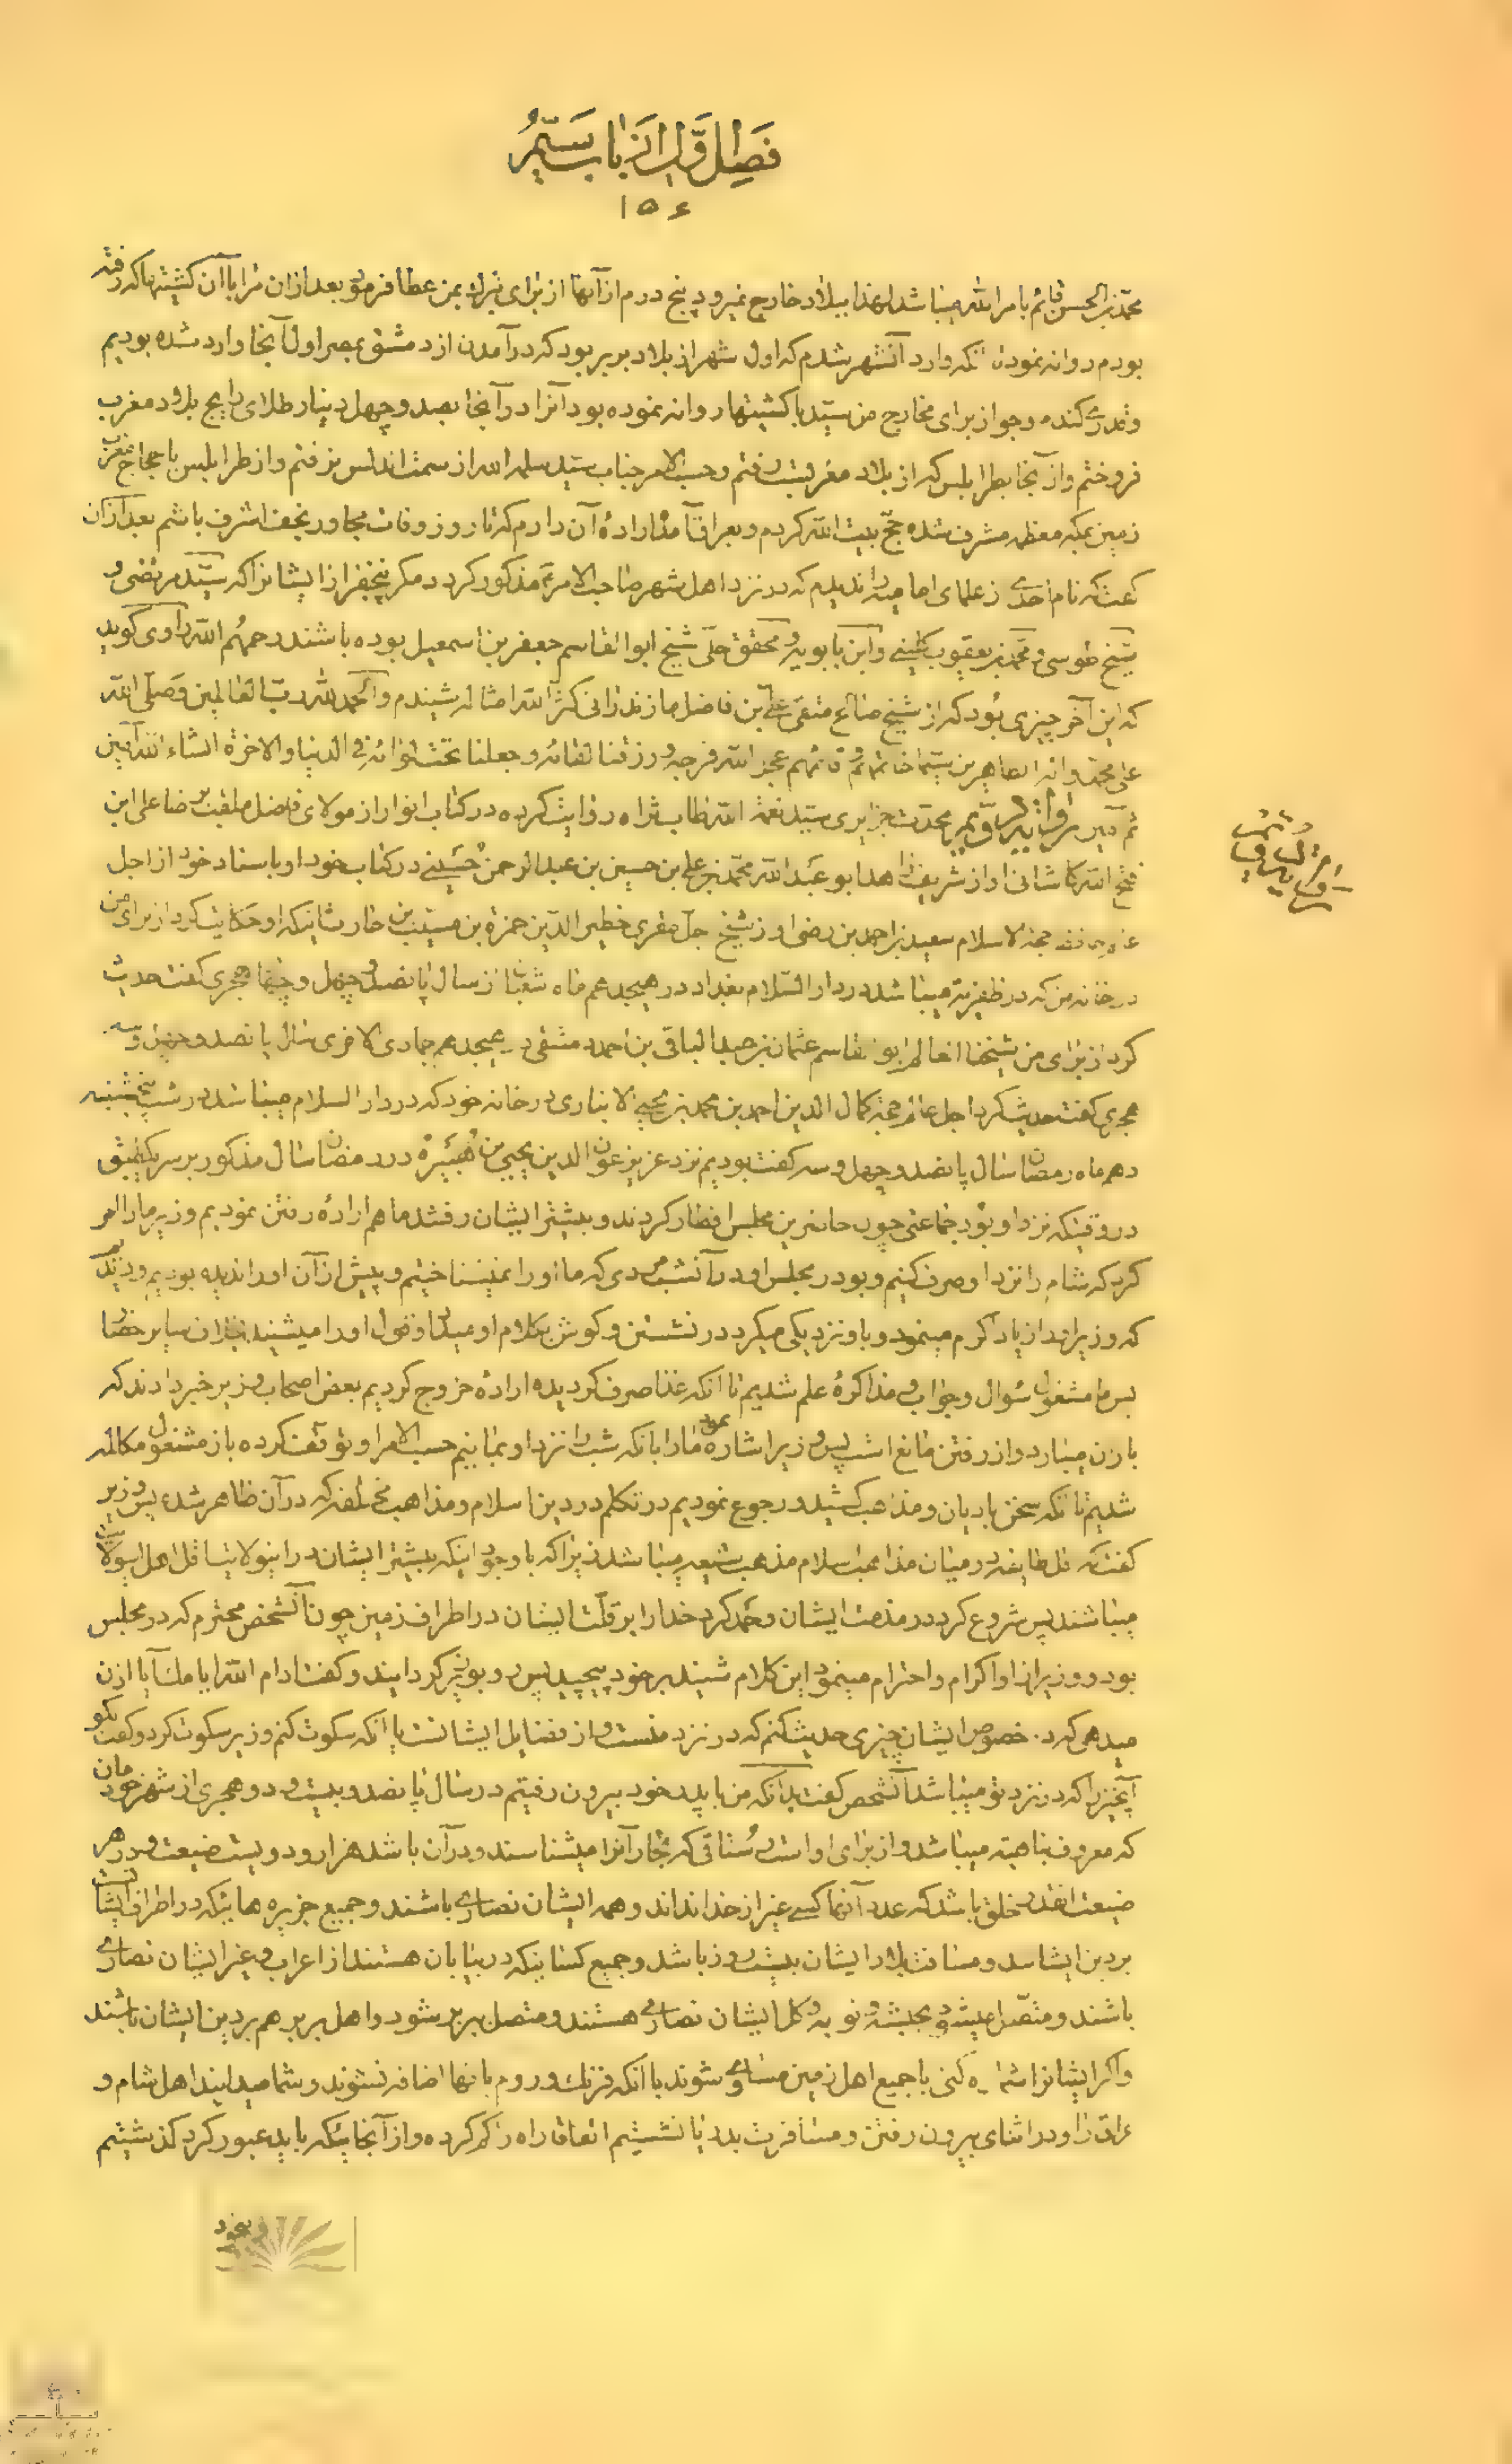 فصل اول از باب سیم
۱۵۶
محمد بن الحسن قائم بامر الله میباشد لهذا ببلاد خارج نمیرود پنج درم از آنها از برای تبرك بمن عطا فرمود بعد از ان مرا با آن کشتیها که رفته
بودم روانه نمود تا آنکه وارد آنشهر شدم که اول شهر از بلاد بربر بود که در آمدن از دمشق بمصر اول آنجا وارد شده بودیم
وقدری گندم وجو از برای مخارج من سید با کشتیها روانه نموده بود آنرا در آنجا بصد و چهل دینار طلای رایج بلاد مغرب
فروختم واز آنجا بطرابلس که از بلاد مغربست رفتم وحسب الامر جناب سید سلمه الله از سمت اندلس نرفتم واز طرابلس با حجاج مغرب
زمین بمکه معظمه مشرف شده حج بیت الله کردم وبعراق آمدم اراده آن دارم که تا روز وفات مجاور نجف اشرف باشم بعد از ان
گفت که نام احدی از علمای امامیه را ندیدم که در نزد اهل شهر صاحب الامر مذکور گردد مگر پنجنفر از ایشانرا که سید مرتضی و
شیخ طوسی و محمد بن یعقوب کلینی وابن بابویه و محقق حلی شیخ ابو القاسم جعفر بن اسمعیل بوده باشند رحمهم الله راوی گوید
که این آخر چیزی بود که از شیخ صالح متقی علی بن فاضل مازندرانی کثر الله امثاله شنیدم والحمد لله رب العالمین وصلی الله
علی محمد واله الطاهرین سیما خاتمهم وقائمهم عجل الله فرجه ورزقنا لقائه وجعلنا تحت لوائه فی الدنیا والاخرة انشاء الله آمین
ثم آمین محدث جزایری سید نعمة الله طاب ثراه روایت کرده در کتاب انوار از مولای فاضل ملقب برضا علی ابن
فتح الله کاشانی او از شریف زاهد ابو عبد الله محمد بن علی بن حسین بن عبد الرحمن حسینی در کتاب خود او باسناد خود از اجل
حجة الاسلام سعید بن احمد بن رضی او از شیخ اجل مقری خطیر الدین حمزة بن مسیب بن حارث اینکه او حکایت کرد از برای من
در خانه من که در ظفریه میباشد در دار السلام بغداد در هیجدهم ماه شعبان از سال پانصد و چهل و هجری گفت حدیث
کرد از برای من شیخنا العالم ابو القاسم عثمان بن عبد الباقی بن احمد دمشقی در هیجدهم جمادی الاخری سال پانصد و چهل و سه
هجری گفت حدیث کرد اجل عالم حجة کمال الدین احمد بن محمد بن یحیی الانباری در خانه خود که در دار السلام میباشد در شب پنجشنبه
دهم ماه رمضان سال پانصد و چهل و سه گفت بودیم نزد عزیز عون الدین یحیی بن هبیره در رمضان سال مذکور بر سر یکطبق
در وقتیکه نزد او بود جماعتی چون حاضرین مجلس افطار کردند و بیشتر ایشان رفتند ما هم اراده رفتن نمودیم وزیر ما را امر
کرد که شام را نزد او صرف کنیم وبود در مجلس او در آنشب مردی که ما او را نمیشناختیم وپیش از آن او را ندیده بودیم ودیدیم
که وزیر او را زیاد اکرام مینمود وباو نزدیکی میکرد در نشستن وگوش بکلام او میداد وقول او را میشنید نه از ان سایر حضار
پس ما مشغول سؤال وجواب و مذاکره علم شدیم تا آنکه غذا صرف گردیده اراده خروج کردیم بعض اصحاب وزیر خبر دادند که
باران میبارد واز رفتن مانع است پس وزیر اشاره نمود مارا بانکه شب را نزد او بمانیم حسب الامر او توقف کرده باز مشغول مکالمه
شدیم تا آنکه سخن بادیان ومذاهب کشید ورجوع نمودیم در تکلم در دین اسلام ومذاهب مختلفه که در آن ظاهر شده پس وزیر
گفت که اقل طایفه در میان مذاهب اسلام مذهب شیعه میباشد زیرا که با وجود اینکه بیشتر ایشان در اینولایتست اقل اهل اینولایت
میباشند پس شروع کرد در مذمت ایشان وحمد کرد خدا را بر قلت ایشان در اطراف زمین چون آنشخص محترم که در مجلس
بود و وزیر از او اکرام واحترام مینمود این کلام شنید بر خود پیچید پس رو بوزیر گردانید وگفت ادام الله ایامك آیا اذن
میدهی که در خصوص ایشان چیزی حدیث کنم که در نزد منست واز فضایل ایشانست یا آنکه سکوت کنم وزیر سکوت کرد وگفت بگو
آنچیزرا که در نزد تو میباشد آنشخص گفت بدانکه من با پدر خود بیرون رفتیم در سال پانصد وبیست ودو هجری از شهر خودمان
که معروف بباهیه میباشد واز برای او است رستاقی که تجار آنرا میشناسند ودر آن باشد هزار ودویست ضیعت ودر هر
ضیعت انقدر خلق باشد که عدد آنها کسی غیر از خدا نداند وهمه ایشان نصاری باشند وجمیع جزیره هائیکه در اطراف ایشانست
بر دین ایشانند ومسافت بلاد ایشان بیست روز باشد وجمیع کسانیکه در بیابان هستند از اعراب وغیر ایشان نصاری
باشند ومتصل میشود بحبشه ونوبه وکل ایشان نصاری هستند ومتصل ببربر شود واهل بربر هم بر دین ایشان باشند
واگر ایشانرا شماره کنی با جمیع اهل زمین مساوی شوند با آنکه فرنك وروم بانها اضافه نشوند وشما میدانید اهل شام و
عراق را ودر اثنای بیرون رفتن ومسافرت بدریا نشستیم اتفاقا راه را گم کرده واز آنجائیکه باید عبور کرد گذشتیم